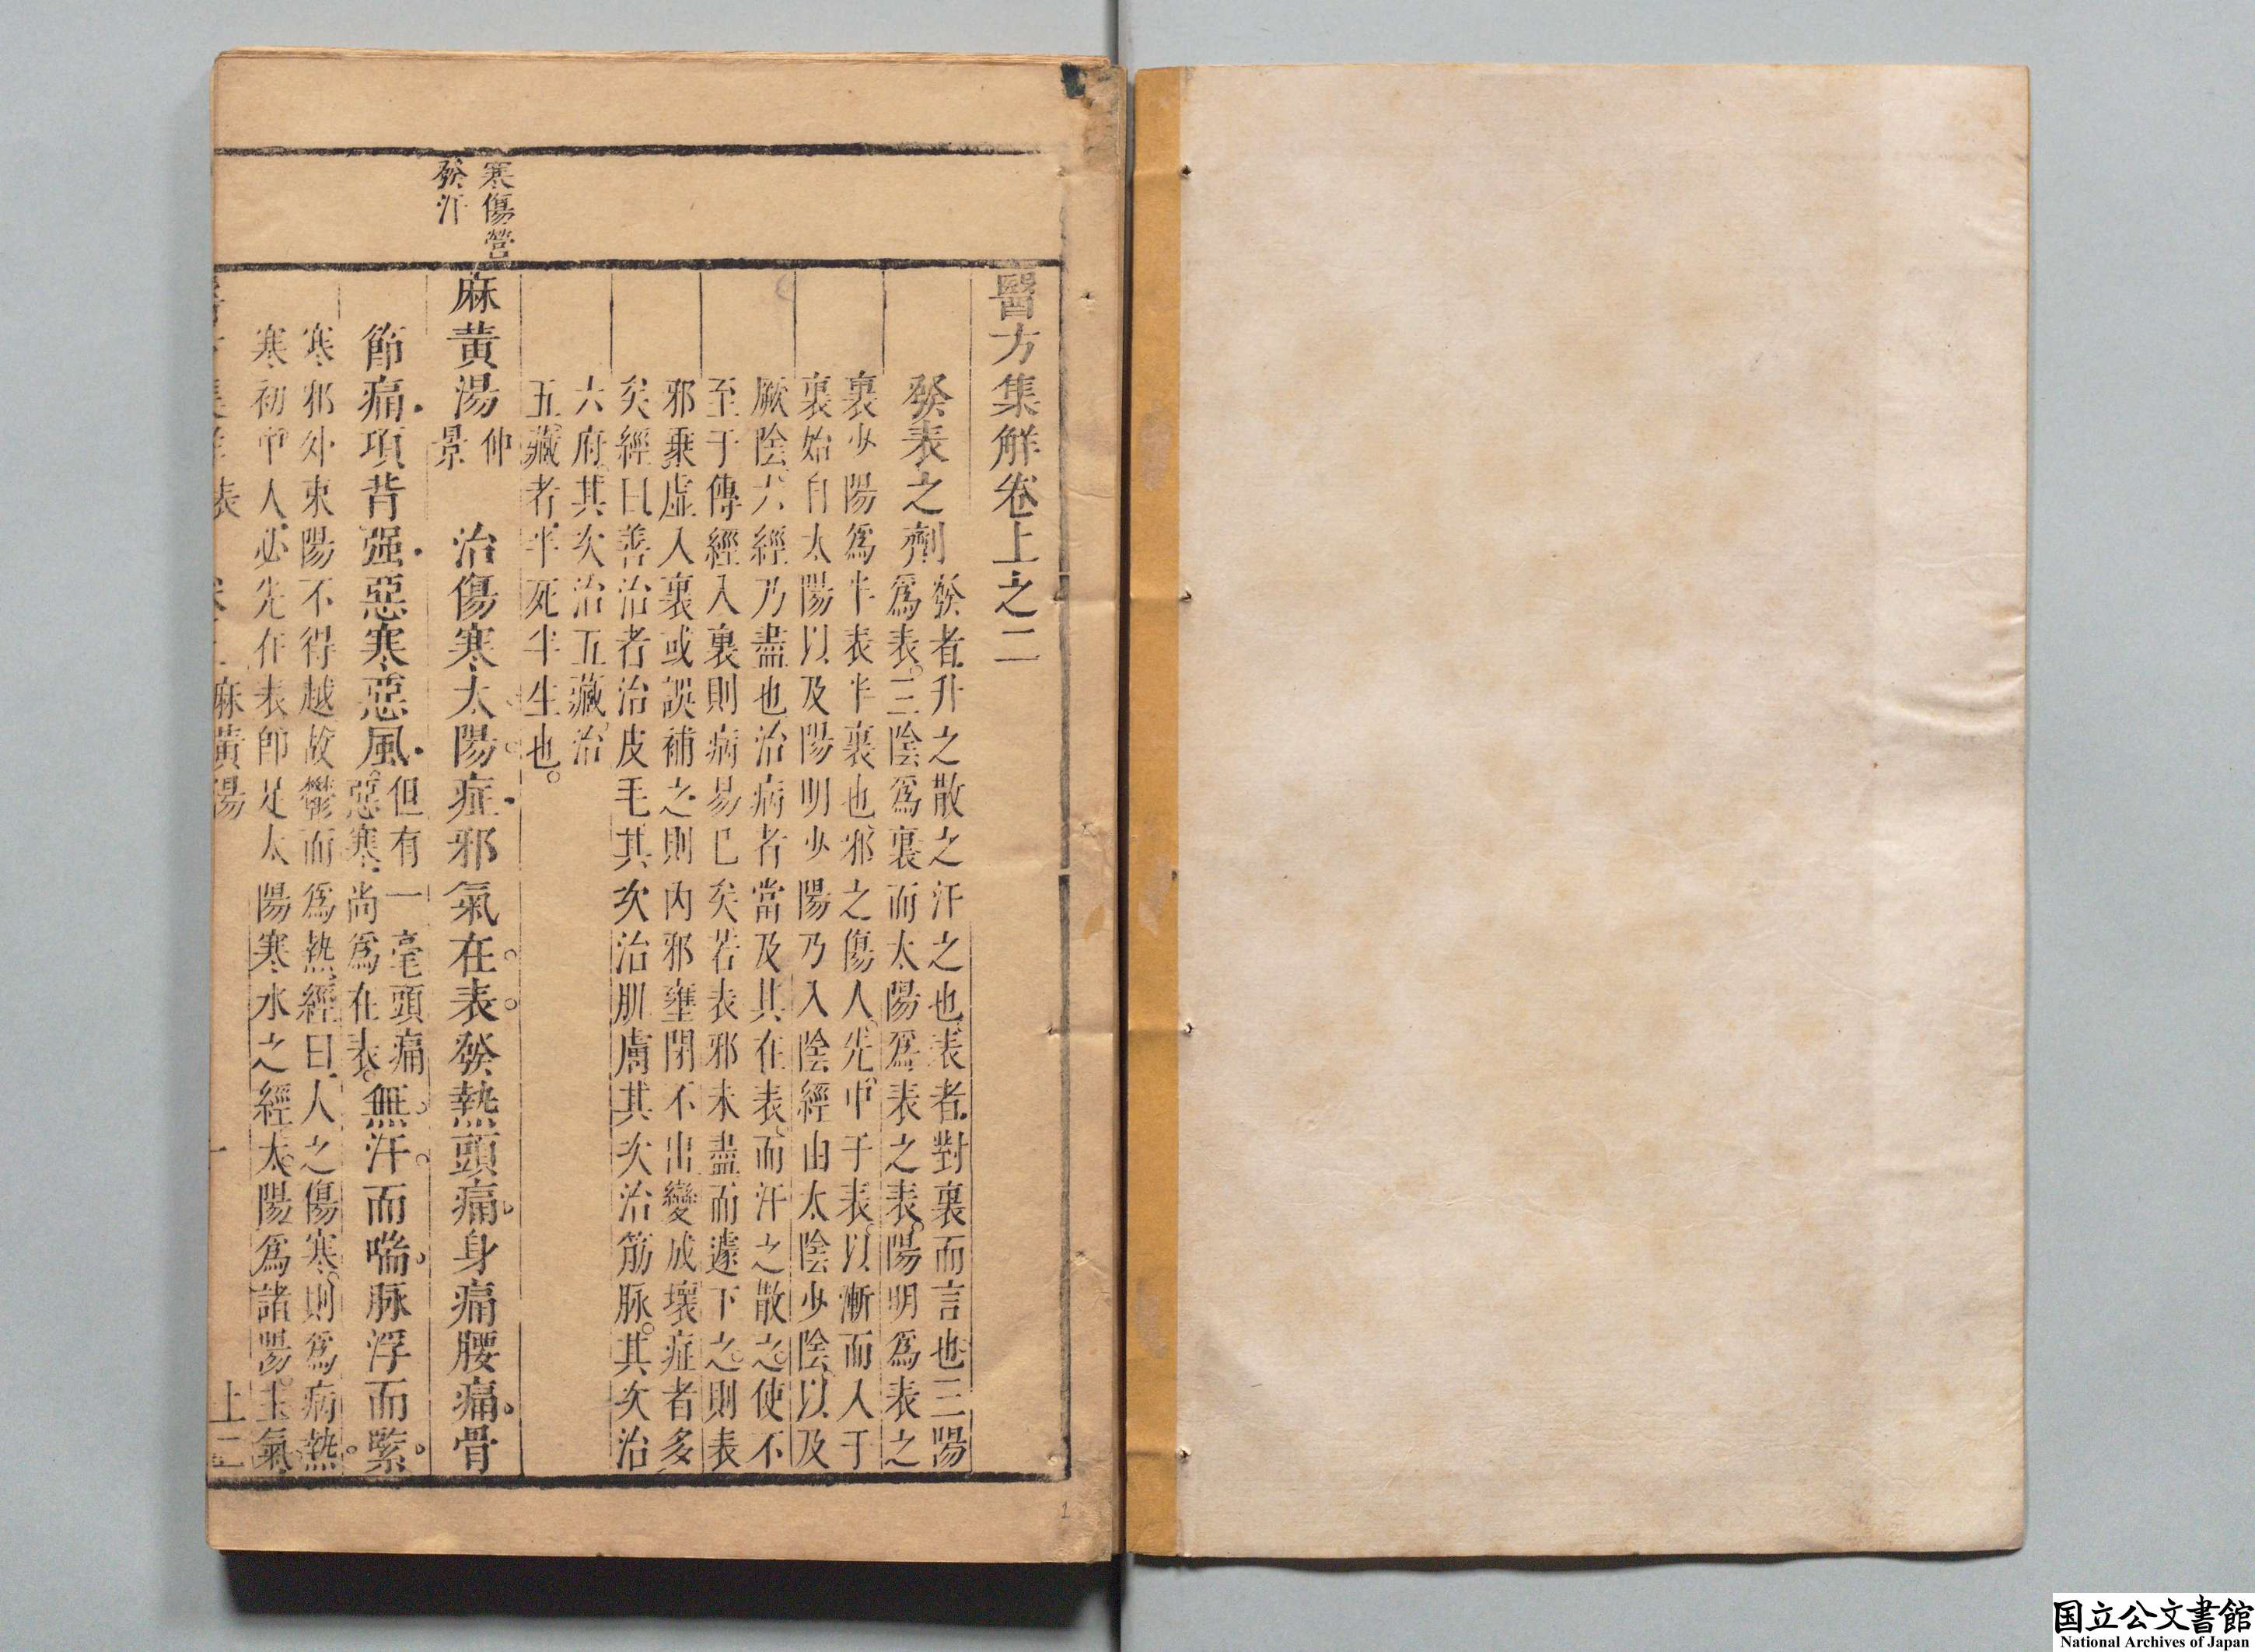 醫方集解卷上之二
發表之劑
發者升之散之汗之也表者對裏而言也三陽
爲表三陰爲裏而太陽爲表之表陽明爲表之
裏少陽爲半表半裏也邪之傷人先中于表以漸而入于
裏始自太陽以及陽明少陽乃入陰經由太陰少陰以及
厥陰六經乃盡也治病者當及其在表而汗之散之使不
至于傳經入裏則病易已矣若表邪未盡而遽下之則表
邪乘虛入裏或誤補之則內邪壅閉不出變成壞症者多
矣經曰善治者治皮毛其次治肌膚其次治筋脉其次治
六府其次治五藏治
五藏者半死半生也
寒傷營
發汗
麻黃湯
仲
景
治傷寒太陽症邪氣在表發熱頭痛身痛腰痛骨
節痛項背强惡寒惡風
但有一毫頭痛
惡寒尚爲在表
無汗而喘脉浮而緊
寒邪外束陽不得越故鬱而爲熱經曰人之傷寒則爲病熱
寒初中人必先在表卽足太陽寒水之經太陽爲諸陽主氣
表
麻黃湯
一
上二
1
国立公文書館
National Archives of Japan